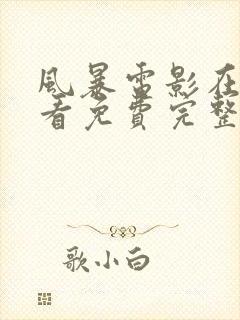 風暴雷影在
看免費完整
歌小白